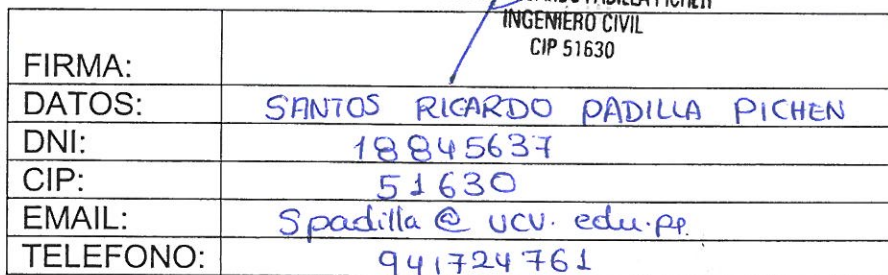 PADILLA PICHEN
INGENIERO CIVIL
CIP 51630
FIRMA:
DATOS: SANTOS RICARDO PADILLA PICHEN
DNI: 18845637
CIP: 51630
EMAIL: Spadilla @ ucv. edu.pe.
TELEFONO: 941724761